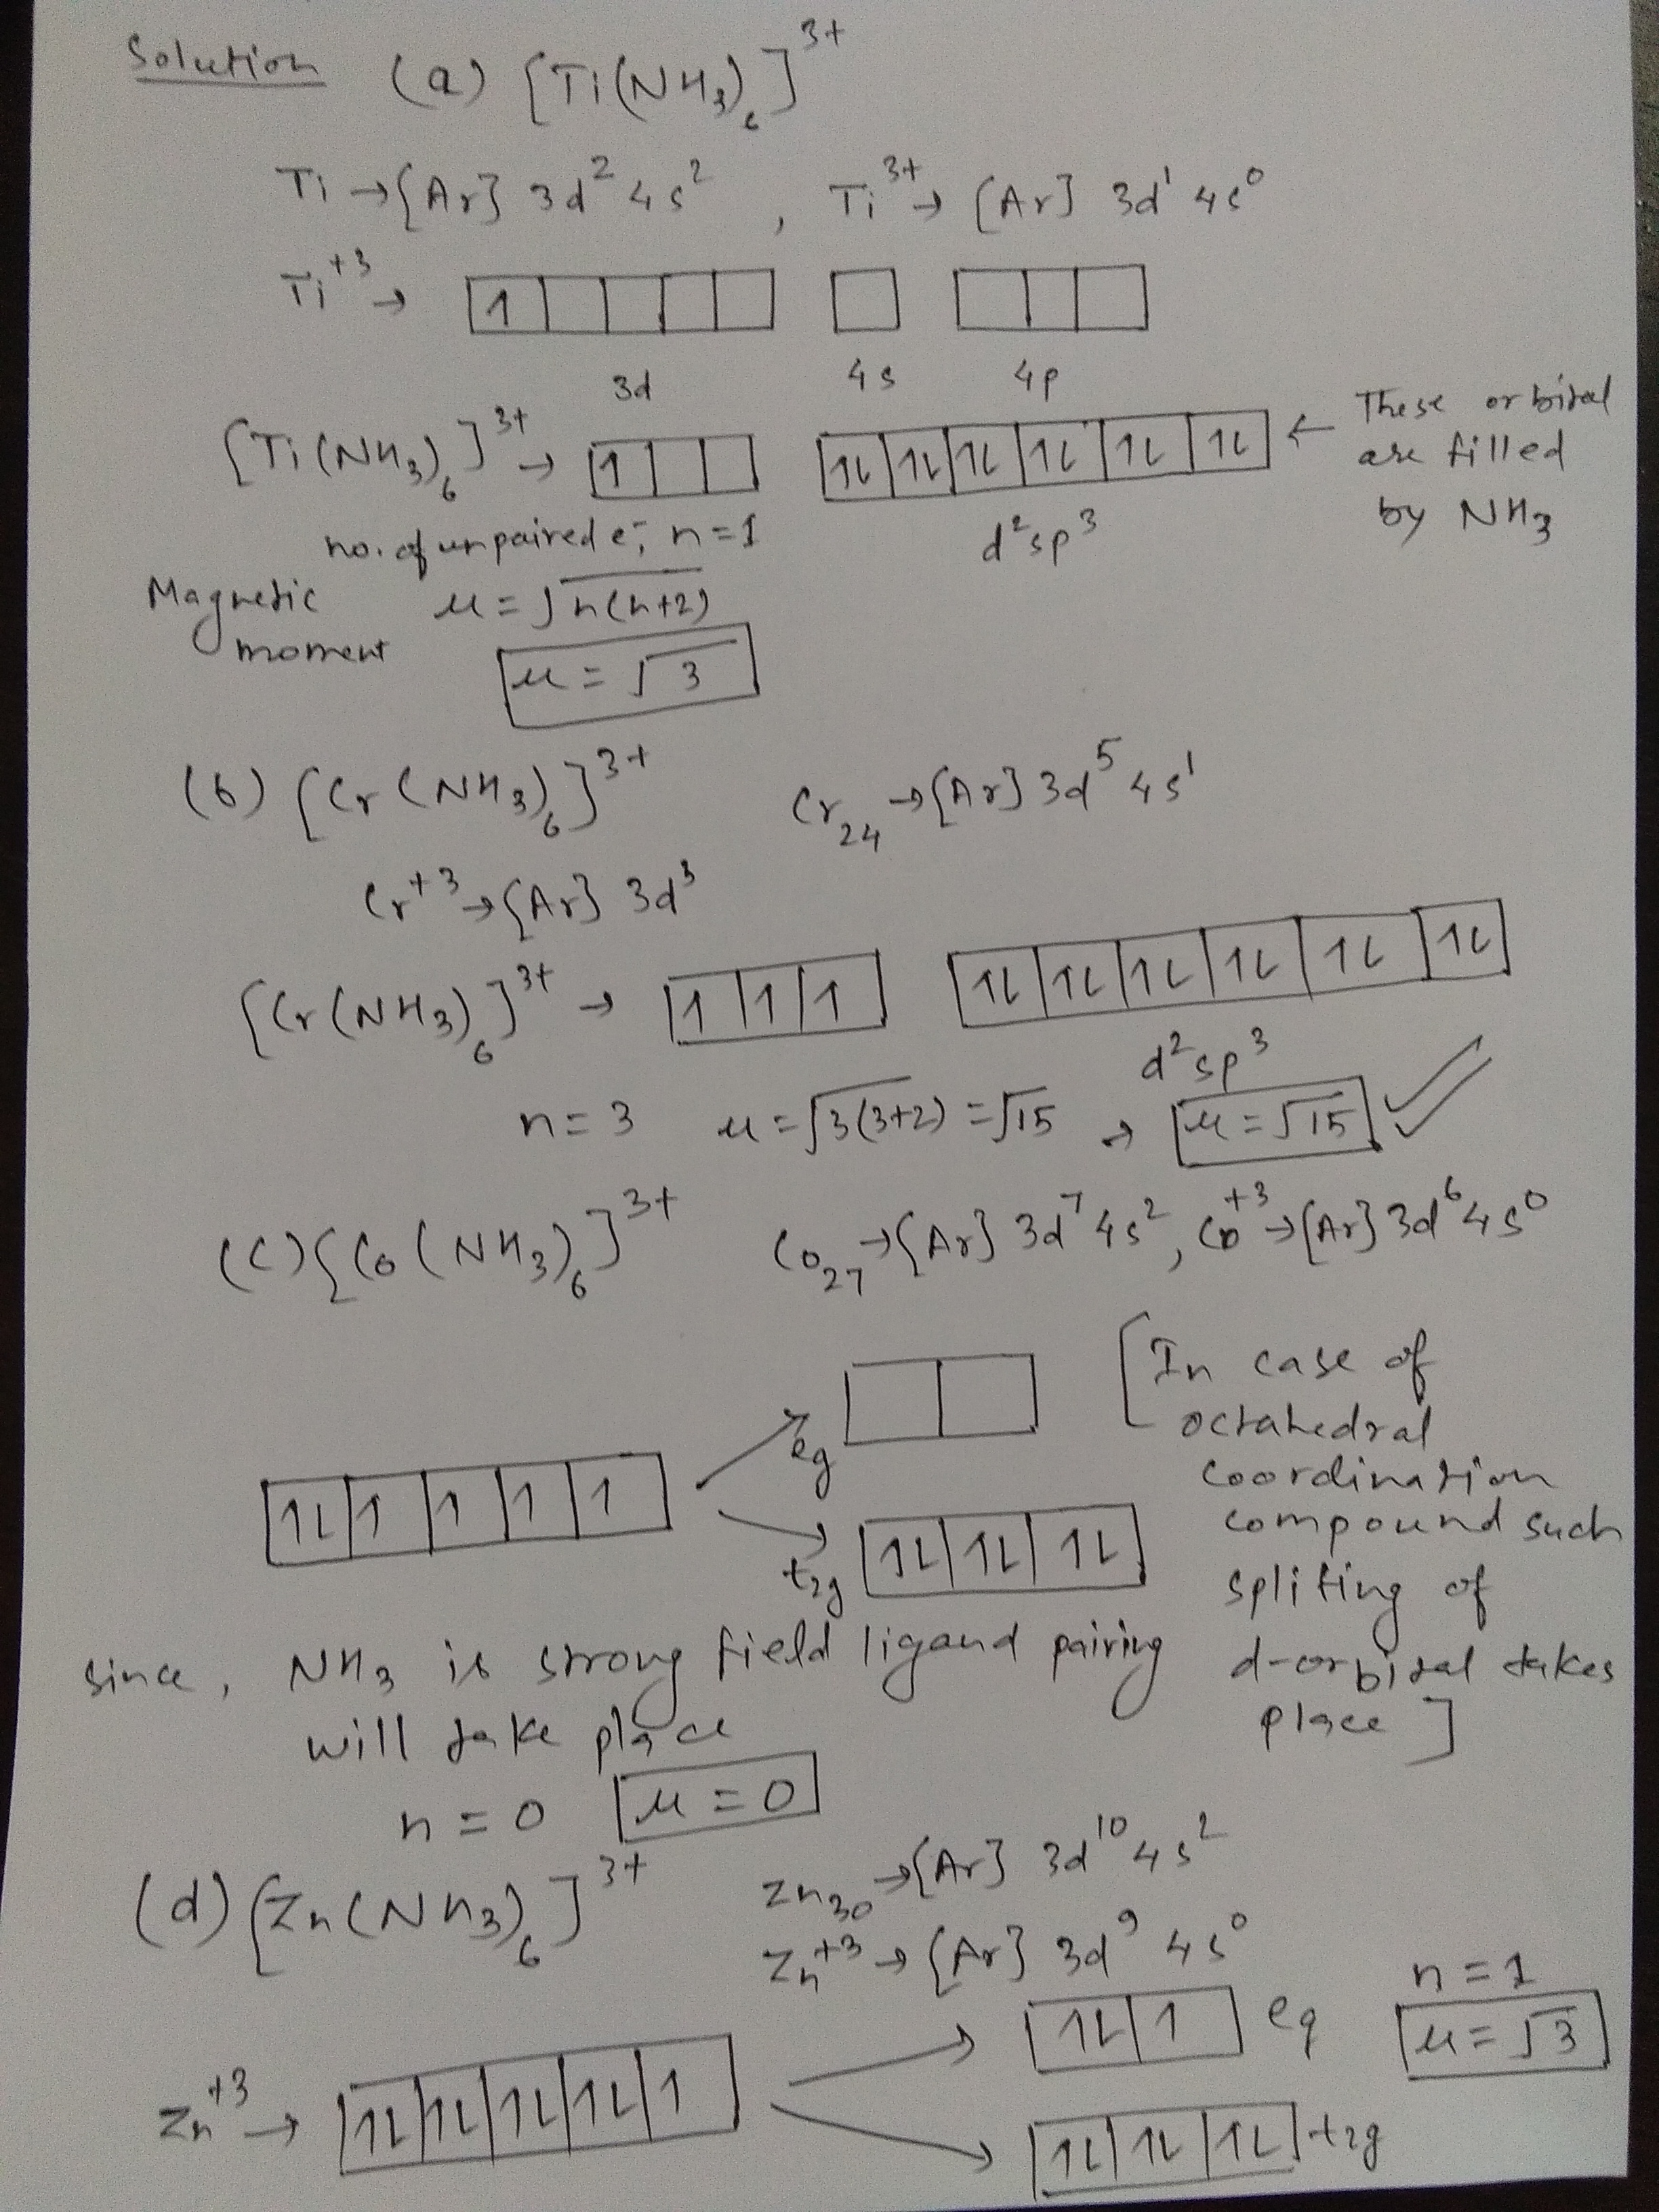 Solution (a) [Ti(NH₃)₆]³⁺
Ti → [Ar] 3d² 4s² , Ti³⁺ → [Ar] 3d¹ 4s⁰
Ti⁺³ → 1
3d 4s 4p
[Ti(NH₃)₆]³⁺ → 1 1L 1L 1L 1L 1L 1L ← These orbital
are filled
by NH₃
no. of unpaired e⁻, n=1 d²sp³
Magnetic moment μ = √n(n+2)
μ = √3
(b) [Cr(NH₃)₆]³⁺ Cr₂₄ → [Ar] 3d⁵ 4s¹
Cr⁺³ → [Ar] 3d³
[Cr(NH₃)₆]³⁺ → 1 1 1 1L 1L 1L 1L 1L 1L
d²sp³
n = 3 μ = √3(3+2) = √15 → μ = √15 ✓
(C) [Co(NH₃)₆]³⁺ Co₂₇ → [Ar] 3d⁷ 4s², Co⁺³ → [Ar] 3d⁶ 4s⁰
[In case of
octahedral
coordination
compound such
spliting of
d-orbital takes
place]
eg
1L 1 1 1 1
t₂g 1L 1L 1L
since, NH₃ is strong field ligand pairing
will take place
n = 0 μ = 0
(d) [Zn(NH₃)₆]³⁺ Zn₃₀ → [Ar] 3d¹⁰ 4s²
Zn⁺³ → [Ar] 3d⁹ 4s⁰
1L 1 eg n = 1
μ = √3
Zn⁺³ → 1L 1L 1L 1L 1
1L 1L 1L t₂g